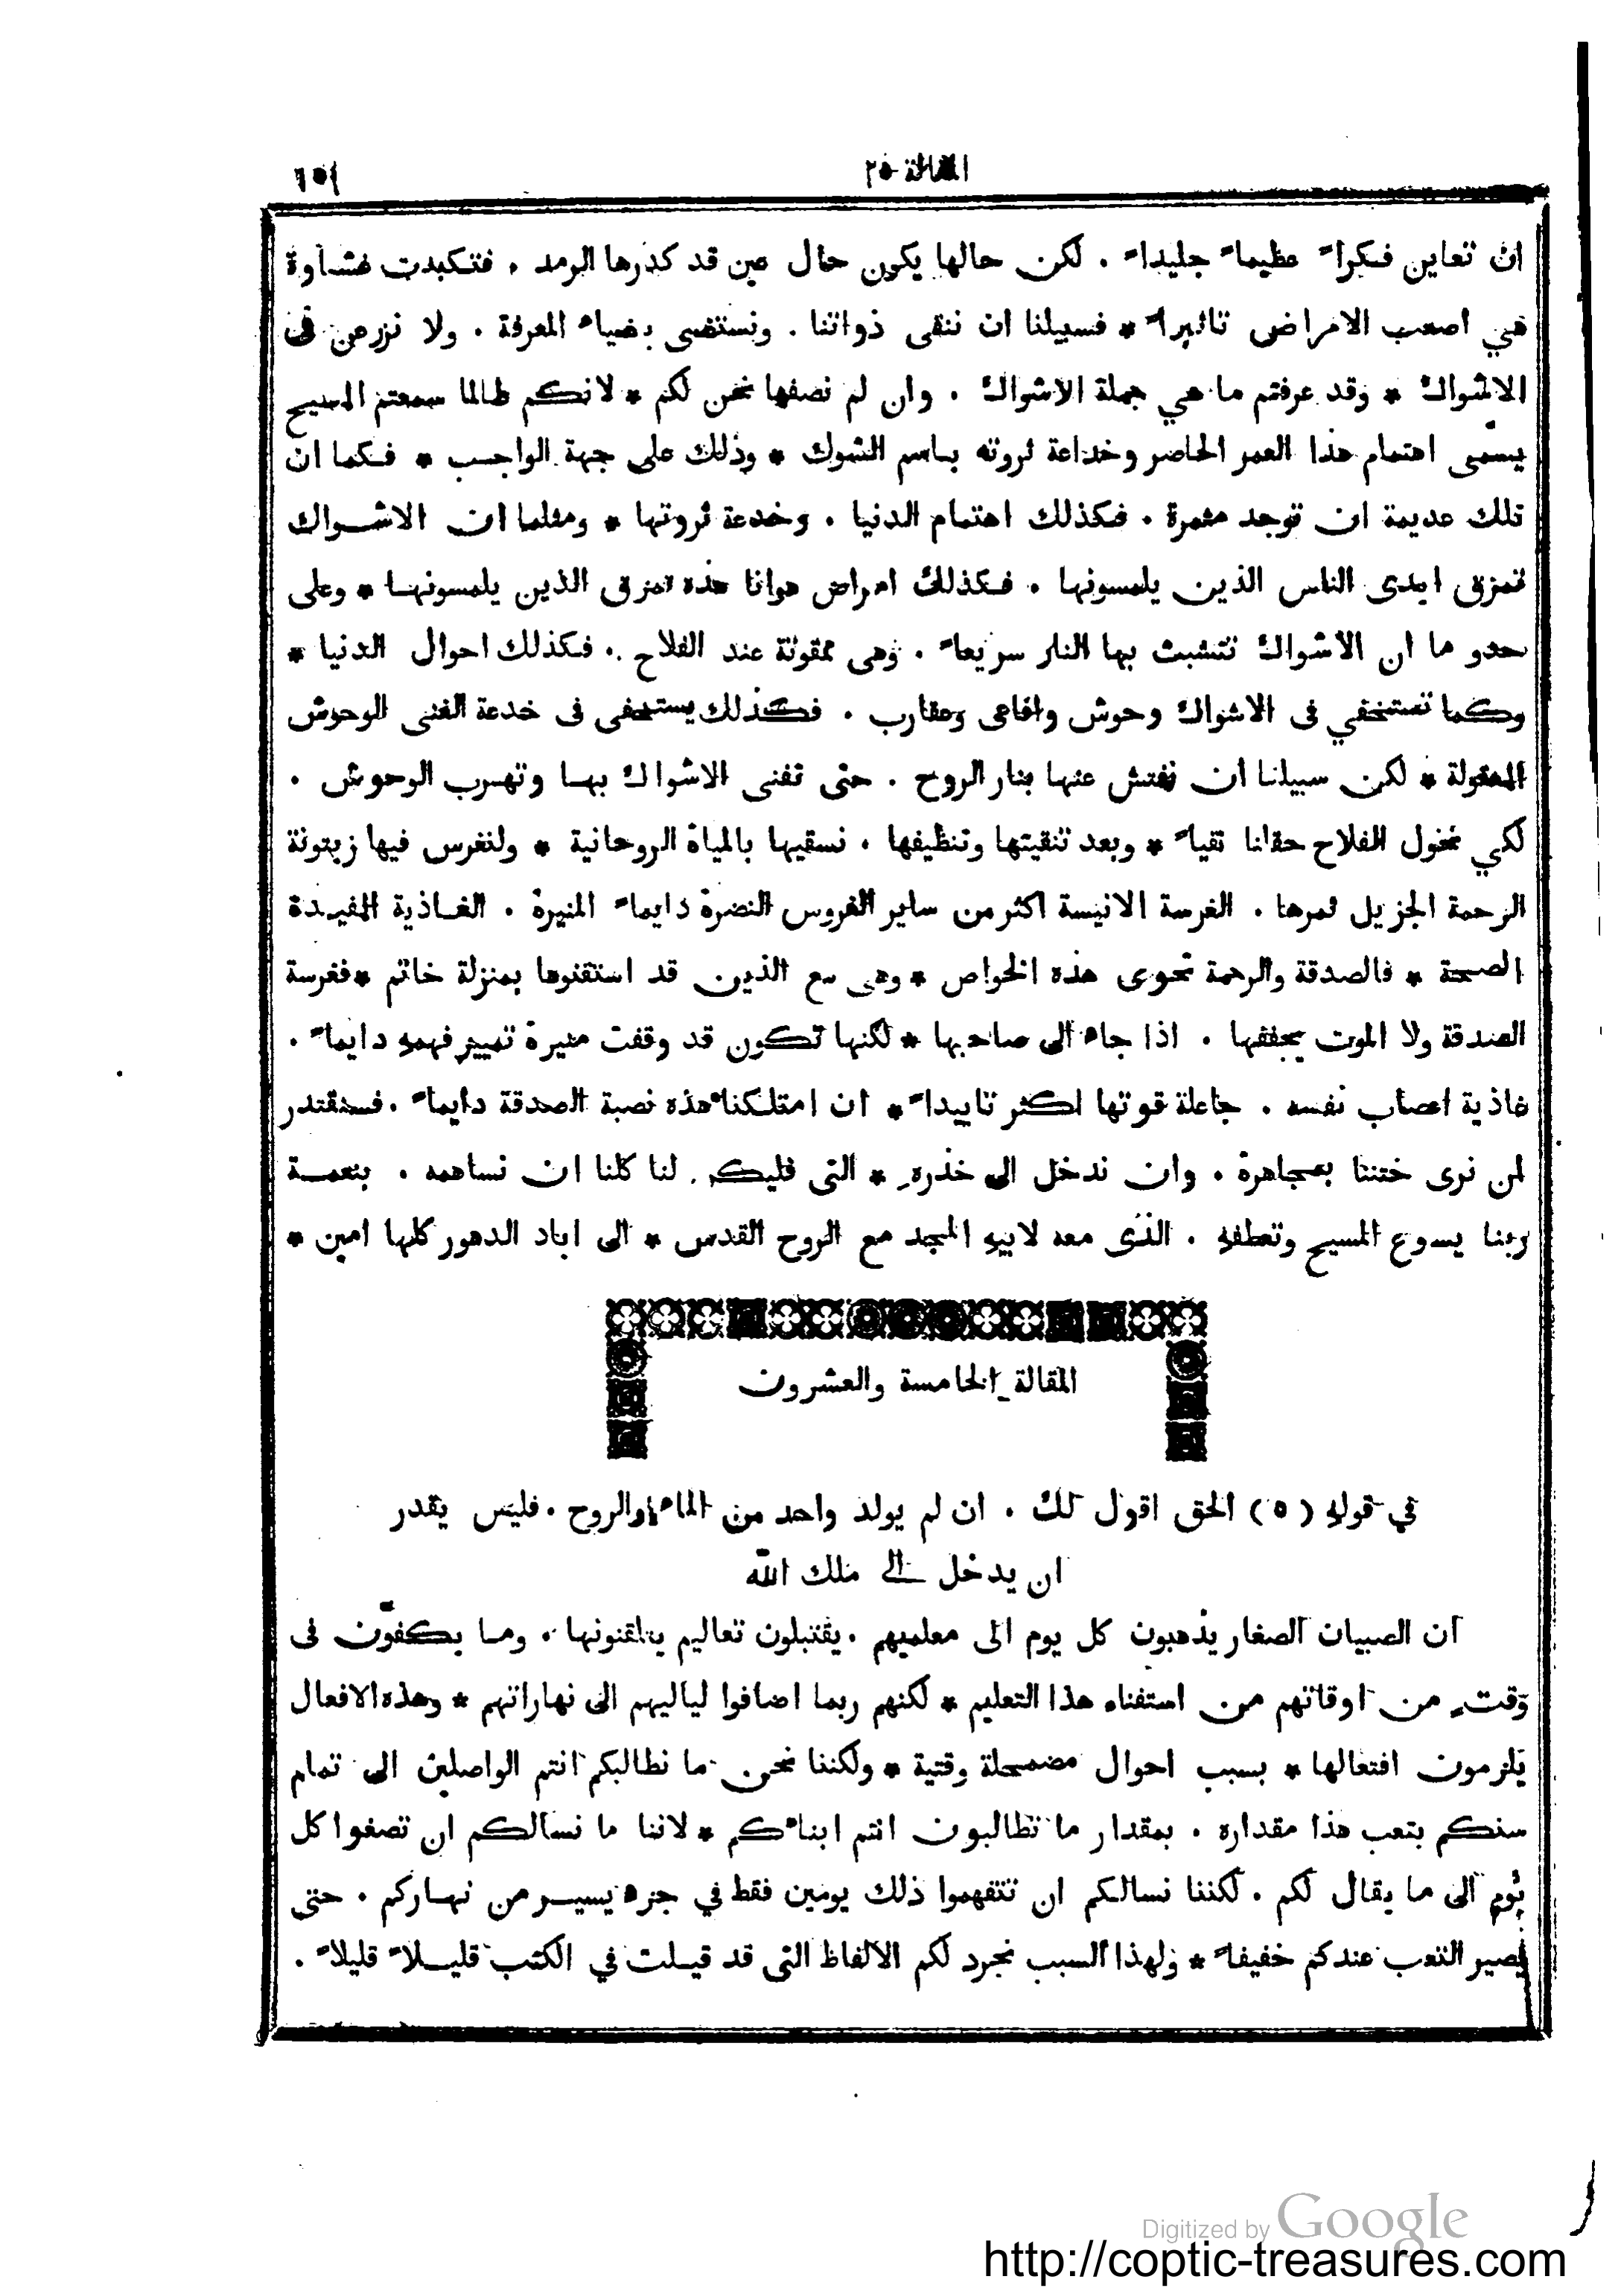 المقالة ٢٥
١٥٦
ان تعاين فكراً عظيماً جليداً . لكن حالها يكون حال عين قد كدرها الرمد . فتكبدت غشاوة
هي اصعب الامراض تاثيراً * فسبيلنا ان ننقى ذواتنا . ونستضى بضياء المعرفة . ولا نزرعن فى
الاشواك * وقد عرفتم ما هي جملة الاشواك . وان لم نصفها نحن لكم * لانكم طالما سمعتم المسيح
يسمّى اهتمام هذا العمر الحاضر وخداعة ثروته باسم الشوك * وذلك على جهة الواجب * فكما ان
تلك عديمة ان توجد مثمرة . فكذلك اهتمام الدنيا . وخدعة ثروتها * ومثلما ان الاشواك
تمزق ايدى الناس الذين يلمسونها . فكذلك امراض هوانا هذه تمزق الذين يلمسونها * وعلى
حدو ما ان الاشواك تتشبث بها النار سريعاً . وهى ممقوتة عند الفلاح . فكذلك احوال الدنيا *
وكما تستخفي فى الاشواك وحوش وافاعى وعقارب . فكذلك يستخفى فى خدعة الغنى الوحوش
المعقولة * لكن سبيلنا ان نفتش عنها بنار الروح . حتى تفنى الاشواك بها وتهرب الوحوش .
لكي نخول الفلاح حقانا نقياً * وبعد تنقيتها وتنظيفها . نسقيها بالمياه الروحانية * ولنغرس فيها زيتونة
الرحمة الجزيل ثمرها . الغرسة الانيسة اكثر من ساير الغروس النضرة دايماً المنيرة . الغاذية المفيدة
الصحة * فالصدقة والرحمة تحوى هذه الخواص * وهى مع الذين قد استقنوها بمنزلة خاتم * فغرسة
الصدقة ولا الموت يجففها . اذا جاء الى صاحبها * لكنها تكون قد وقفت منيرة تمييز فهمه دايماً .
غاذية اعصاب نفسه . جاعلة قوتها اكثر تاييداً * ان امتلكنا هذه نصبة الصدقة دايماً . فسنقتدر
لن نرى ختننا بمجاهرة . وان ندخل الى خذره * التى فليكم . لنا كلنا ان نساهمه . بنعمة
ربنا يسوع المسيح وتعطفه . الذى معه لابيه المجد مع الروح القدس * الى اباد الدهور كلها امين *
المقالة الخامسة والعشرون
في قوله (٥) الحق اقول لك . ان لم يولد واحد من الماء والروح . فليس يقدر
ان يدخل الى ملك الله
ان الصبيان الصغار يذهبون كل يوم الى معلميهم . يقتبلون تعاليم يتلقنونها . وما يكفّون فى
وقت من اوقاتهم من استفناء هذا التعليم * لكنهم ربما اضافوا لياليهم الى نهاراتهم * وهذه الافعال
يلزمون افتعالها * بسبب احوال مضمحلة وقتية * ولكننا نحن ما نطالبكم انتم الواصلين الى تمام
سنكم بتعب هذا مقداره . بمقدار ما تطالبون انتم ابناءكم * لاننا ما نسالكم ان تصغوا كل
يوم الى ما يقال لكم . لكننا نسالكم ان تتفهموا ذلك يومين فقط في جزء يسير من نهاركم . حتى
يصير التعب عندكم خفيفاً * ولهذا السبب نجرد لكم الالفاظ التى قد قيلت في الكتب قليلاً قليلاً .
Digitized by Google
http://coptic-treasures.com